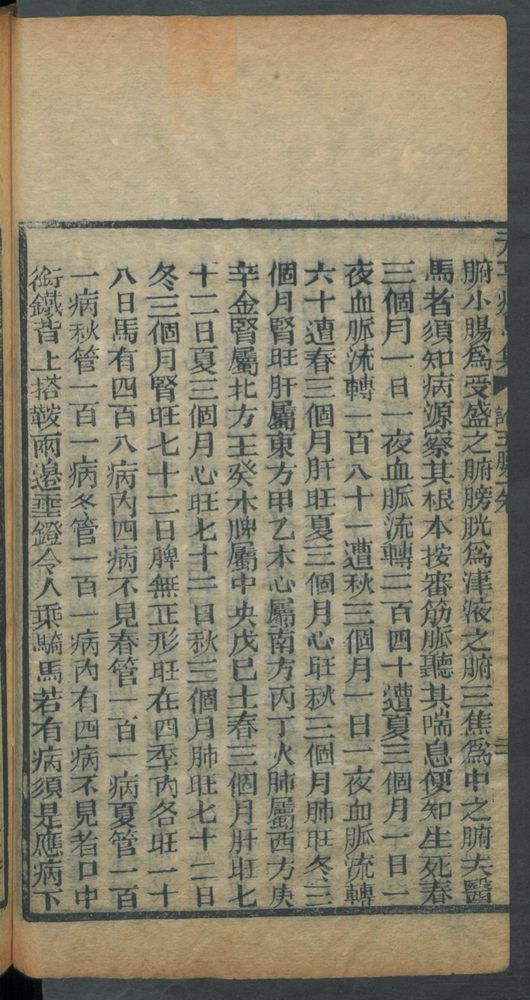 腑小腸為受盛之腑膀胱為津液之腑三焦為中之腑夫醫
馬者須知病源察其根本按審筋脈聽其喘息便知生死春
三個月一日一夜血脈流轉二百四十遭夏三個月一日一
夜血脈流轉一百八十一遭秋三個月一日一夜血脈流轉
六十遭春三個月肝旺夏三個月心旺秋三個月肺旺冬三
個月腎旺肝屬東方甲乙木心屬南方丙丁火肺屬西方庚
辛金腎屬北方王癸木脾屬中央戊巳土春三個月肝旺七
十二日夏三個月心旺七十二日秋三個月肺旺七十二日
冬三個月腎旺七十二日脾無正形旺在四季內各旺一十
八日馬有四百八病內四病不見春管一百一病夏管一百
一病秋管一百一病冬管一百一病內有四病不見者口中
啣鐵背上搭鞍兩邊垂鐙令人乘騎馬若有病須是應病下